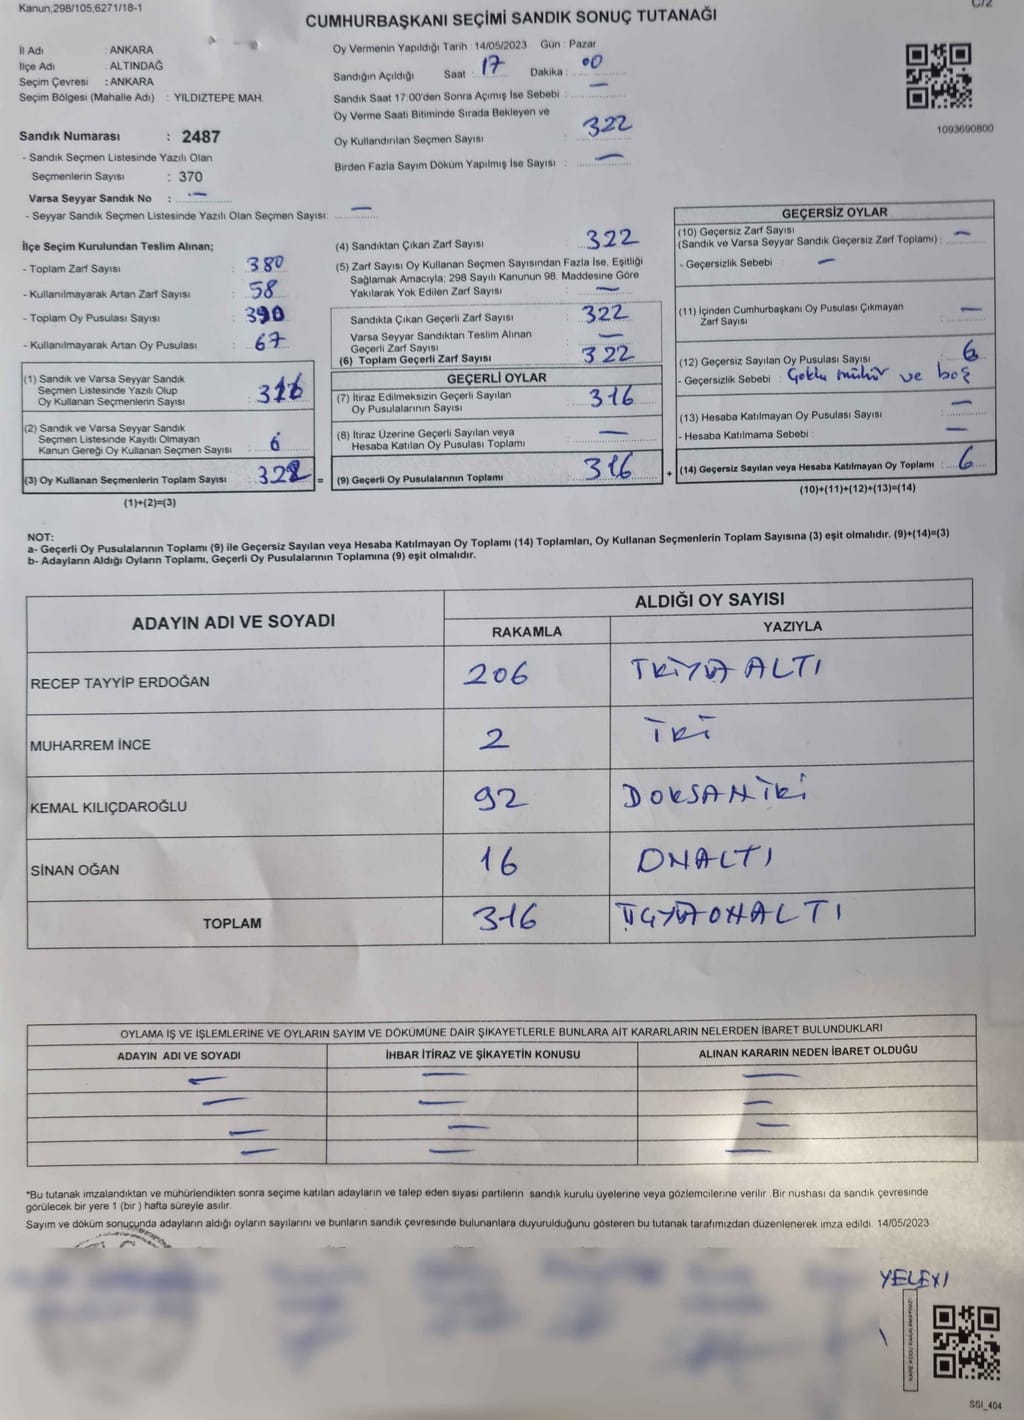 Kanun;298/105;6271/18-1
C/2
CUMHURBAŞKANI SEÇİMİ SANDIK SONUÇ TUTANAĞI
İl Adı : ANKARA
İlçe Adı : ALTINDAĞ
Seçim Çevresi : ANKARA
Seçim Bölgesi (Mahalle Adı) : YILDIZTEPE MAH.
Sandık Numarası : 2487
- Sandık Seçmen Listesinde Yazılı Olan
Seçmenlerin Sayısı : 370
Varsa Seyyar Sandık No : —
- Seyyar Sandık Seçmen Listesinde Yazılı Olan Seçmen Sayısı: —
Oy Vermenin Yapıldığı Tarih : 14/05/2023 Gün : Pazar
Sandığın Açıldığı Saat : 17 Dakika : 00
Sandık Saat 17:00'den Sonra Açımış İse Sebebi : —
Oy Verme Saati Bitiminde Sırada Bekleyen ve
Oy Kullandırılan Seçmen Sayısı : 322
Birden Fazla Sayım Döküm Yapılmış İse Sayısı : —
1093690800
İlçe Seçim Kurulundan Teslim Alınan;
- Toplam Zarf Sayısı : 380
- Kullanılmayarak Artan Zarf Sayısı : 58
- Toplam Oy Pusulası Sayısı : 390
- Kullanılmayarak Artan Oy Pusulası : 67
(1) Sandık ve Varsa Seyyar Sandık
Seçmen Listesinde Yazılı Olup
Oy Kullanan Seçmenlerin Sayısı : 316
(2) Sandık ve Varsa Seyyar Sandık
Seçmen Listesinde Kayıtlı Olmayan
Kanun Gereği Oy Kullanan Seçmen Sayısı : 6
(3) Oy Kullanan Seçmenlerin Toplam Sayısı : 322 =
(1)+(2)=(3)
(4) Sandıktan Çıkan Zarf Sayısı : 322
(5) Zarf Sayısı Oy Kullanan Seçmen Sayısından Fazla İse, Eşitliği
Sağlamak Amacıyla; 298 Sayılı Kanunun 98. Maddesine Göre
Yakılarak Yok Edilen Zarf Sayısı : —
Sandıkta Çıkan Geçerli Zarf Sayısı : 322
Varsa Seyyar Sandıktan Teslim Alınan
Geçerli Zarf Sayısı : —
(6) Toplam Geçerli Zarf Sayısı : 322
GEÇERLİ OYLAR
(7) İtiraz Edilmeksizin Geçerli Sayılan
Oy Pusulalarının Sayısı : 316
(8) İtiraz Üzerine Geçerli Sayılan veya
Hesaba Katılan Oy Pusulası Toplamı : —
(9) Geçerli Oy Pusulalarının Toplamı : 316 +
GEÇERSİZ OYLAR
(10) Geçersiz Zarf Sayısı
(Sandık ve Varsa Seyyar Sandık Geçersiz Zarf Toplamı) : —
- Geçersizlik Sebebi : —
(11) İçinden Cumhurbaşkanı Oy Pusulası Çıkmayan
Zarf Sayısı : —
(12) Geçersiz Sayılan Oy Pusulası Sayısı : 6
- Geçersizlik Sebebi : Çoklu mühür ve boş
(13) Hesaba Katılmayan Oy Pusulası Sayısı : —
- Hesaba Katılmama Sebebi : —
(14) Geçersiz Sayılan veya Hesaba Katılmayan Oy Toplamı : 6
(10)+(11)+(12)+(13)=(14)
NOT:
a- Geçerli Oy Pusulalarının Toplamı (9) ile Geçersiz Sayılan veya Hesaba Katılmayan Oy Toplamı (14) Toplamları, Oy Kullanan Seçmenlerin Toplam Sayısına (3) eşit olmalıdır. (9)+(14)=(3)
b- Adayların Aldığı Oyların Toplamı, Geçerli Oy Pusulalarının Toplamına (9) eşit olmalıdır.
ADAYIN ADI VE SOYADI ALDIĞI OY SAYISI
RAKAMLA YAZIYLA
RECEP TAYYİP ERDOĞAN 206 İKİYÜZ ALTI
MUHARREM İNCE 2 İKİ
KEMAL KILIÇDAROĞLU 92 DOKSANİKİ
SİNAN OĞAN 16 ONALTI
TOPLAM 316 ÜÇYÜZONALTI
OYLAMA İŞ VE İŞLEMLERİNE VE OYLARIN SAYIM VE DÖKÜMÜNE DAİR ŞİKAYETLERLE BUNLARA AİT KARARLARIN NELERDEN İBARET BULUNDUKLARI
ADAYIN ADI VE SOYADI İHBAR İTİRAZ VE ŞİKAYETİN KONUSU ALINAN KARARIN NEDEN İBARET OLDUĞU
— — —
— — —
— — —
— — —
*Bu tutanak imzalandıktan ve mühürlendikten sonra seçime katılan adayların ve talep eden siyasi partilerin sandık kurulu üyelerine veya gözlemcilerine verilir. Bir nüshası da sandık çevresinde
görülecek bir yere 1 (bir) hafta süreyle asılır.
Sayım ve döküm sonucunda adayların aldığı oyların sayılarını ve bunların sandık çevresinde bulunanlara duyurulduğunu gösteren bu tutanak tarafımızdan düzenlenerek imza edildi. 14/05/2023
SSI_404